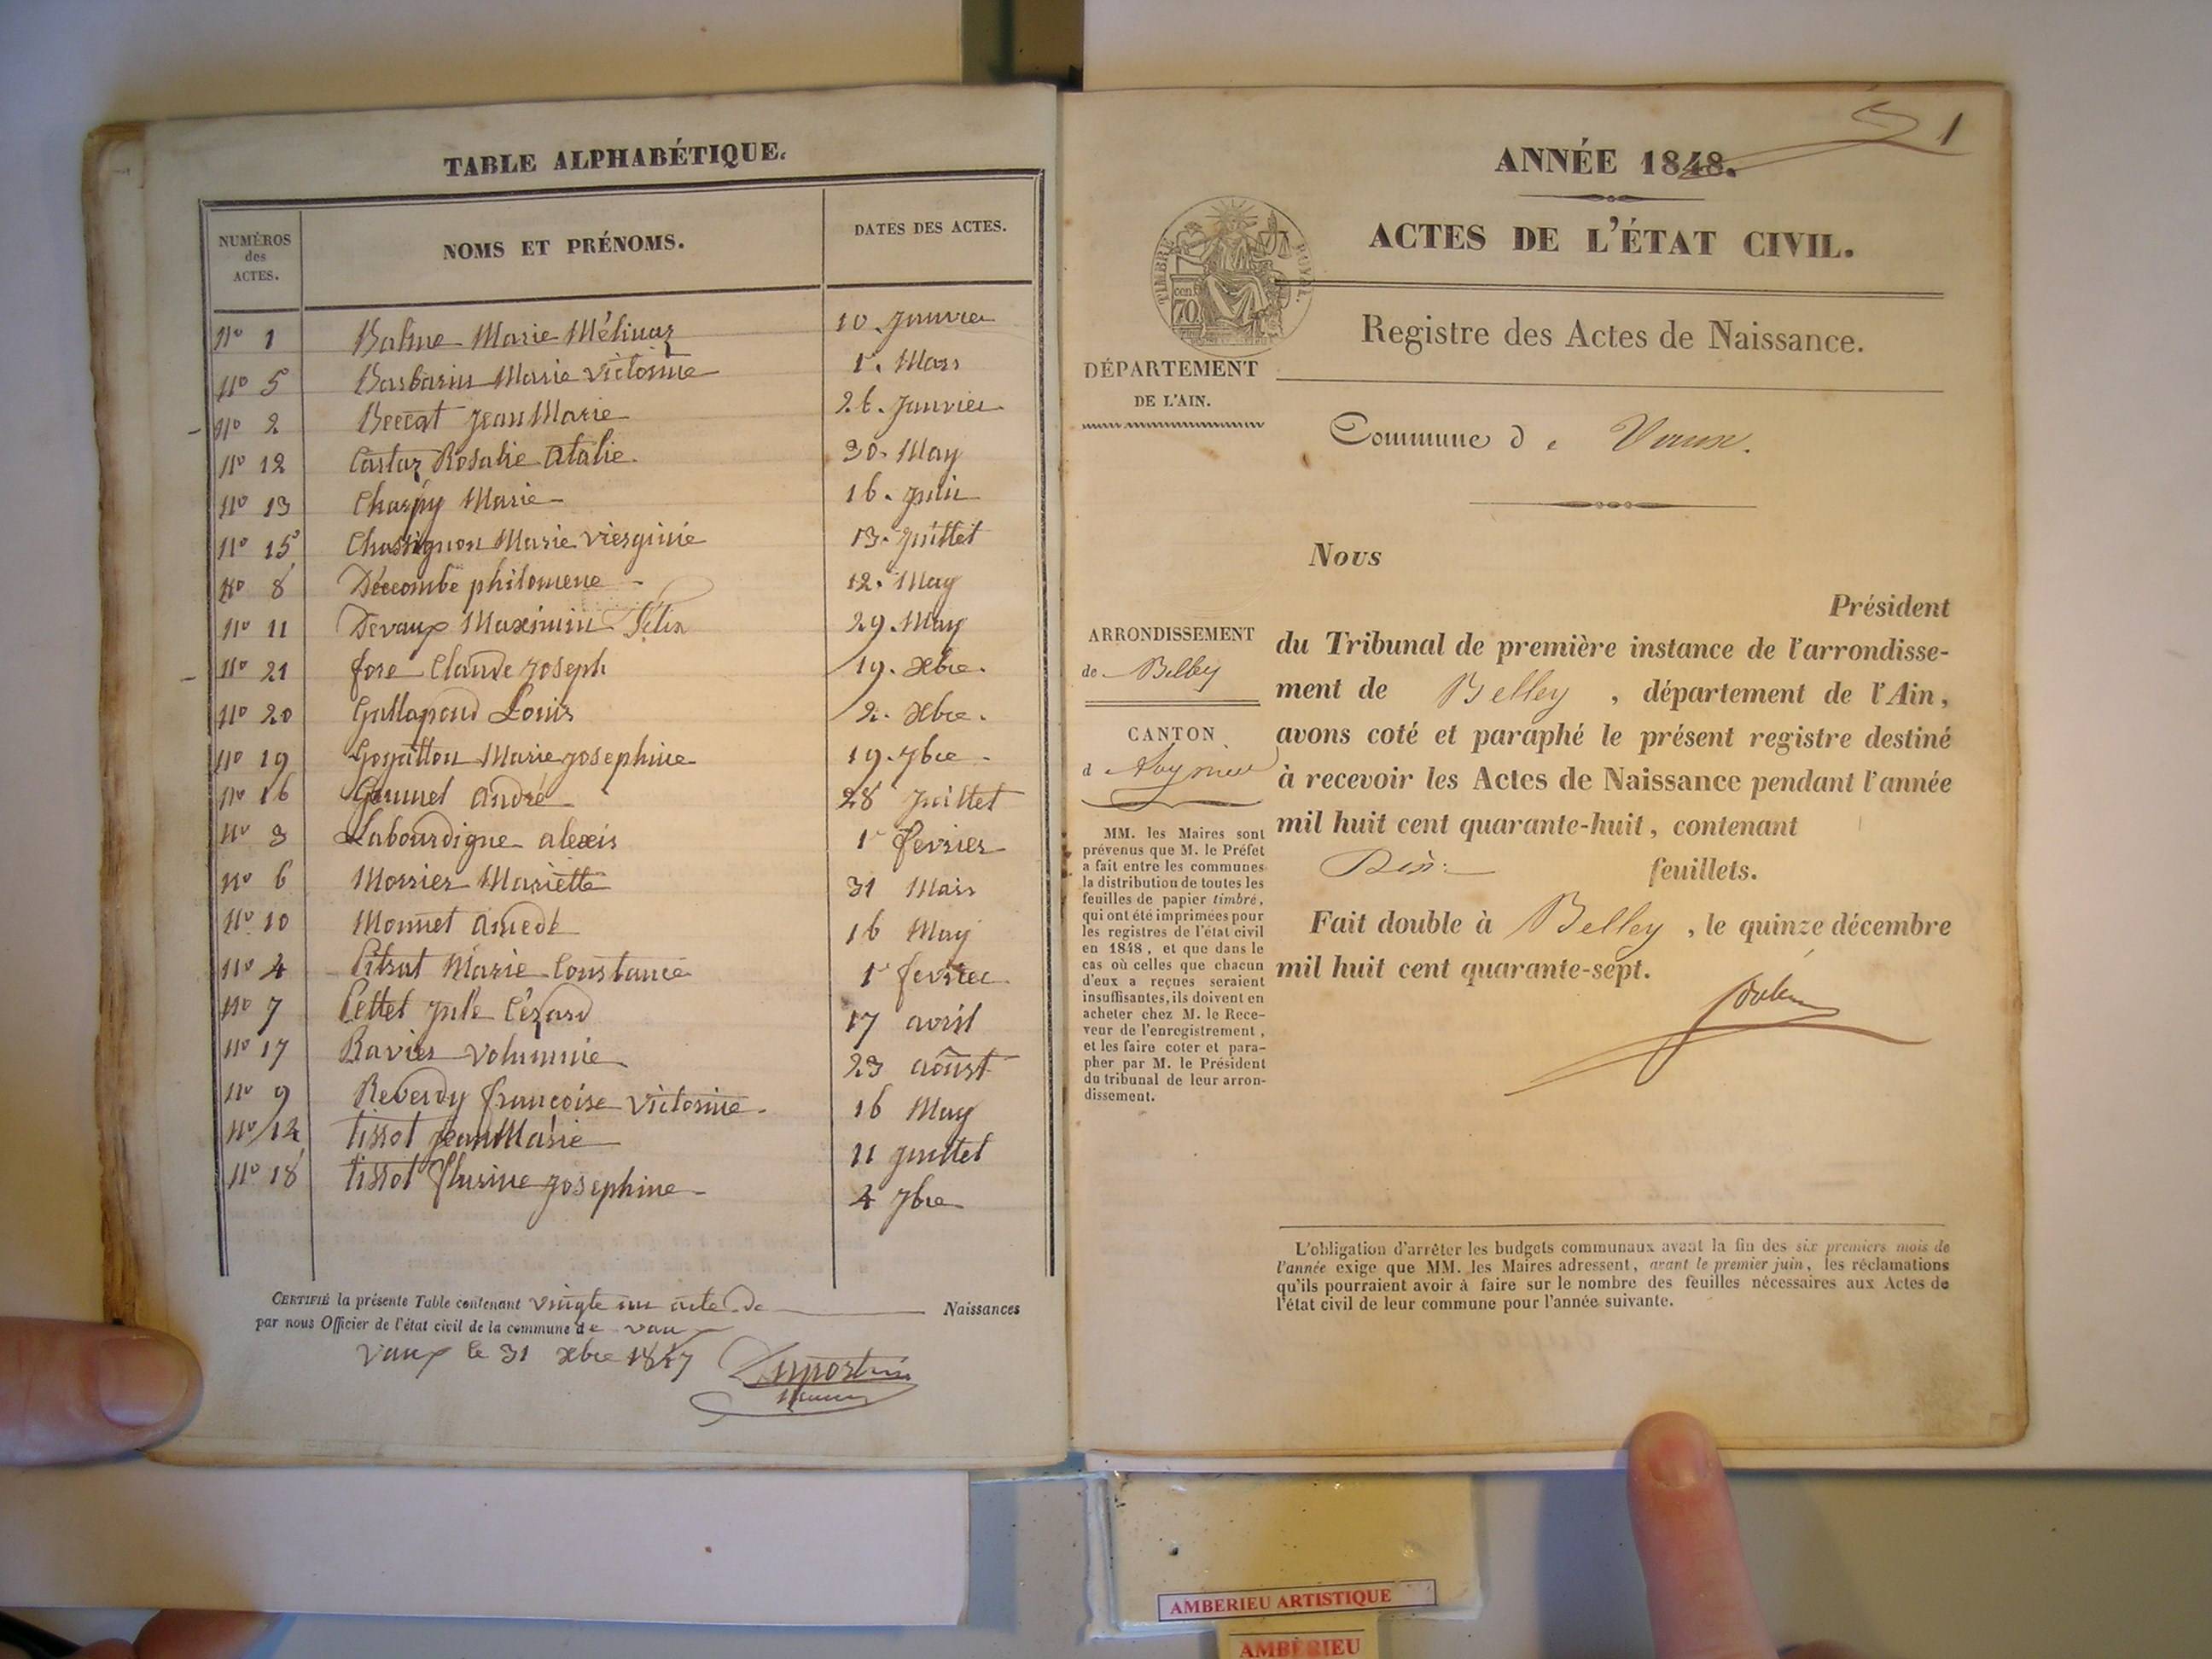 TABLE ALPHABÉTIQUE.
NUMÉROS des ACTES.
NOMS ET PRÉNOMS.
DATES DES ACTES.
No 1 Balme Marie Mélinaz 10 Janvier
No 5 Barbarin Marie Victorine 1r. Mars
No 2 Beccat Jean Marie 26. Janvier
No 12 Castaz Rosalie Atalie 30. May
No 13 Charpy Marie 16. Juin
No 15 Chassignon Marie Viergine 13. Juillet
No 8 Décombe philomene 12. May
No 11 Devaux Maximin Félix 29. May
No 21 fore Claude Joseph 19. Xbre.
No 20 Gallapaud Louis 2. Xbre.
No 19 Goyatton Marie Josephine 19. 7bre
No 16 André 28 Juillet
No 3 Labourdigue alexis 1r fevrier
No 6 Morrier Mariette 31 Mars
No 10 Monnet Amedé 16 May
No 4 Pitrat Marie Constance 1r fevrier
No 7 Pettet Jule Cézard 17 avril
No 17 Ravier Volumnie 23 Aoust
No 9 Reverdy françoise Victorine 16 May
No 14 tissot Jean Marie 11 Juillet
No 18 tissot flurine Josephine 4 7bre
CERTIFIÉ la présente Table contenant vingte un acte de Naissances
par nous Officier de l'état civil de la commune de vaux
Vaux le 31 Xbre 1847
1
ANNÉE 1848.
ACTES DE L'ÉTAT CIVIL.
TIMBRE ROYAL.
70 cent
Registre des Actes de Naissance.
DÉPARTEMENT
DE L'AIN.
Commune de Vaux.
Nous
Président
du Tribunal de première instance de l'arrondisse-
ment de Belley, département de l'Ain,
avons coté et paraphé le présent registre destiné
à recevoir les Actes de Naissance pendant l'année
mil huit cent quarante-huit, contenant
Dix feuillets.
Fait double à Belley, le quinze décembre
mil huit cent quarante-sept.
ARRONDISSEMENT
de Belley
CANTON
d Lagnieu
MM. les Maires sont
prévenus que M. le Préfet
a fait entre les communes
la distribution de toutes les
feuilles de papier timbré,
qui ont été imprimées pour
les registres de l'état civil
en 1848, et que dans le
cas où celles que chacun
d'eux a reçues seraient
insuffisantes, ils doivent en
acheter chez M. le Rece-
veur de l'enregistrement,
et les faire coter et para-
pher par M. le Président
du tribunal de leur arron-
dissement.
L'obligation d'arrêter les budgets communaux avant la fin des six premiers mois de
l'année exige que MM. les Maires adressent, avant le premier juin, les réclamations
qu'ils pourraient avoir à faire sur le nombre des feuilles nécessaires aux Actes de
l'état civil de leur commune pour l'année suivante.
AMBERIEU ARTISTIQUE
AMBÉRIEU